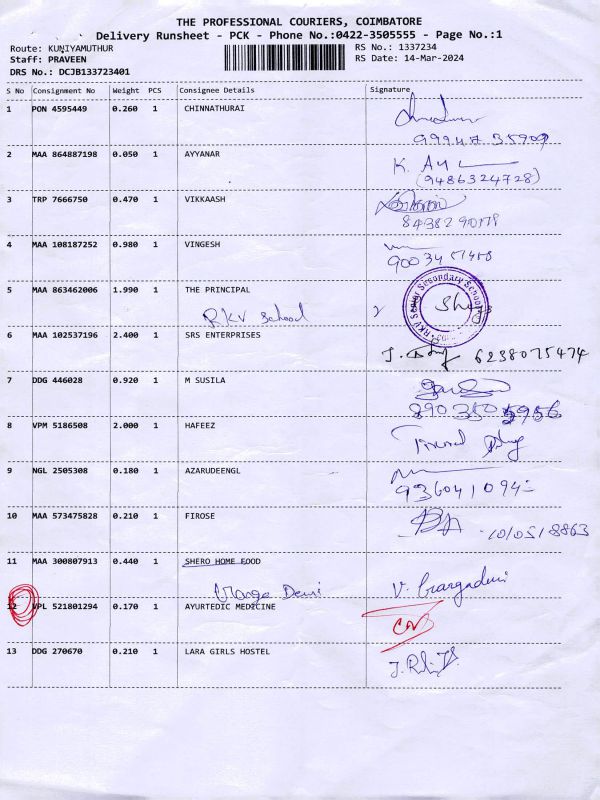 THE PROFESSIONAL COURIERS, COIMBATORE
Delivery Runsheet - PCK - Phone No.:0422-3505555 - Page No.:1
Route: KUNIYAMUTHUR RS No.: 1337234
Staff: PRAVEEN RS Date: 14-Mar-2024
DRS No.: DCJB133723401
S No Consignment No Weight PCS Consignee Details Signature
1 PON 4595449 0.260 1 CHINNATHURAI
99947 35909
2 MAA 864887198 0.050 1 AYYANAR K. Ay
(9486324728)
3 TRP 7666750 0.470 1 VIKKAASH
4 MAA 108187252 0.980 1 VINGESH
5 MAA 863462006 1.990 1 THE PRINCIPAL
RKV School
6 MAA 102537196 2.400 1 SRS ENTERPRISES
6238075474
7 DDG 446028 0.920 1 M SUSILA
890 350 5956
8 VPM 5186508 2.000 1 HAFEEZ
9 NGL 2505308 0.180 1 AZARUDEENGL
10 MAA 573475828 0.210 1 FIROSE
11 MAA 300807913 0.440 1 SHERO HOME FOOD
12 VPL 521801294 0.170 1 AYURTEDIC MEDICINE
13 DDG 270670 0.210 1 LARA GIRLS HOSTEL